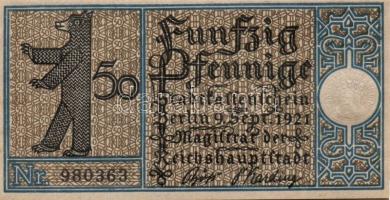 Funfzig
50 Pfennige
Stadtkassenschein
Berlin 9. Sept. 1921
Magistrat der
Reichshauptstadt
Nr. 980363